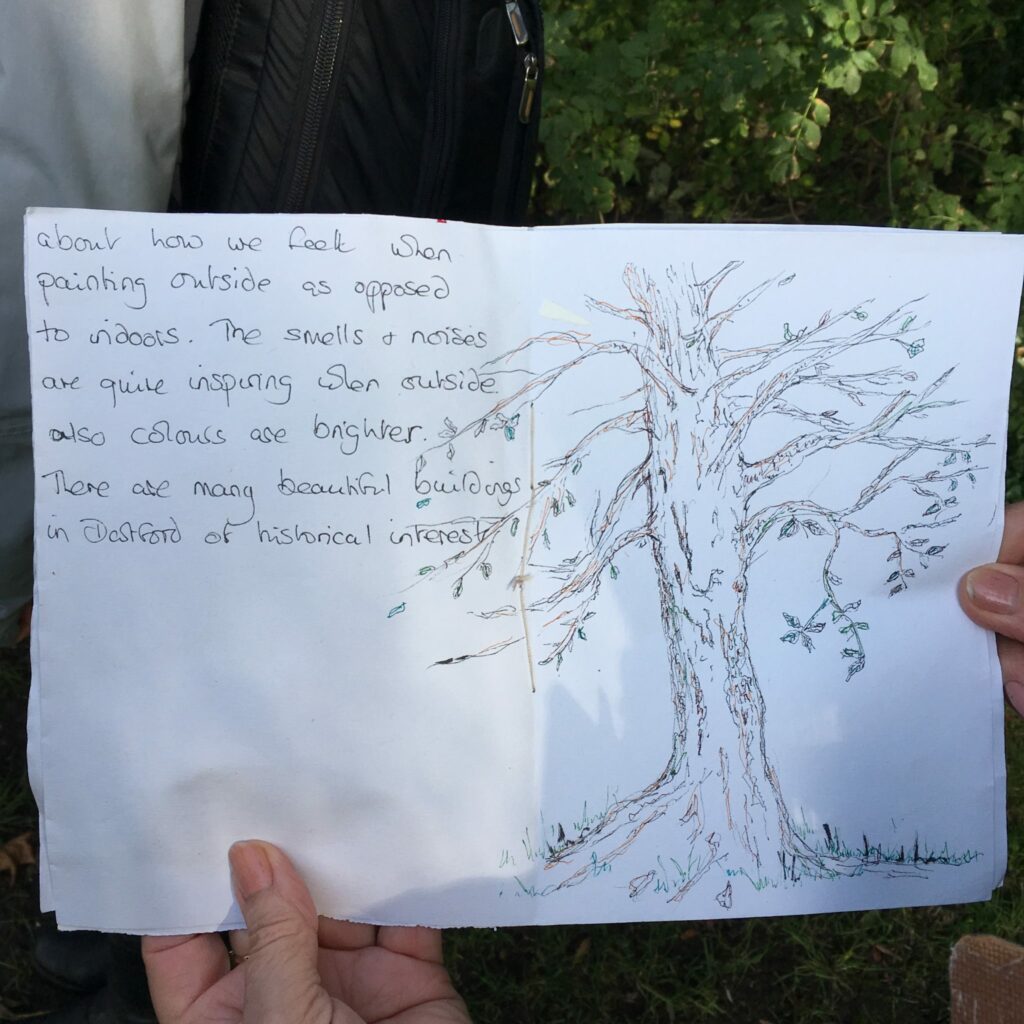 about how we feel when
painting outside as opposed
to indoors. The smells + noises
are quite inspiring when outside
also colours are brighter.
There are many beautiful buildings
in Dartford of historical interest
.